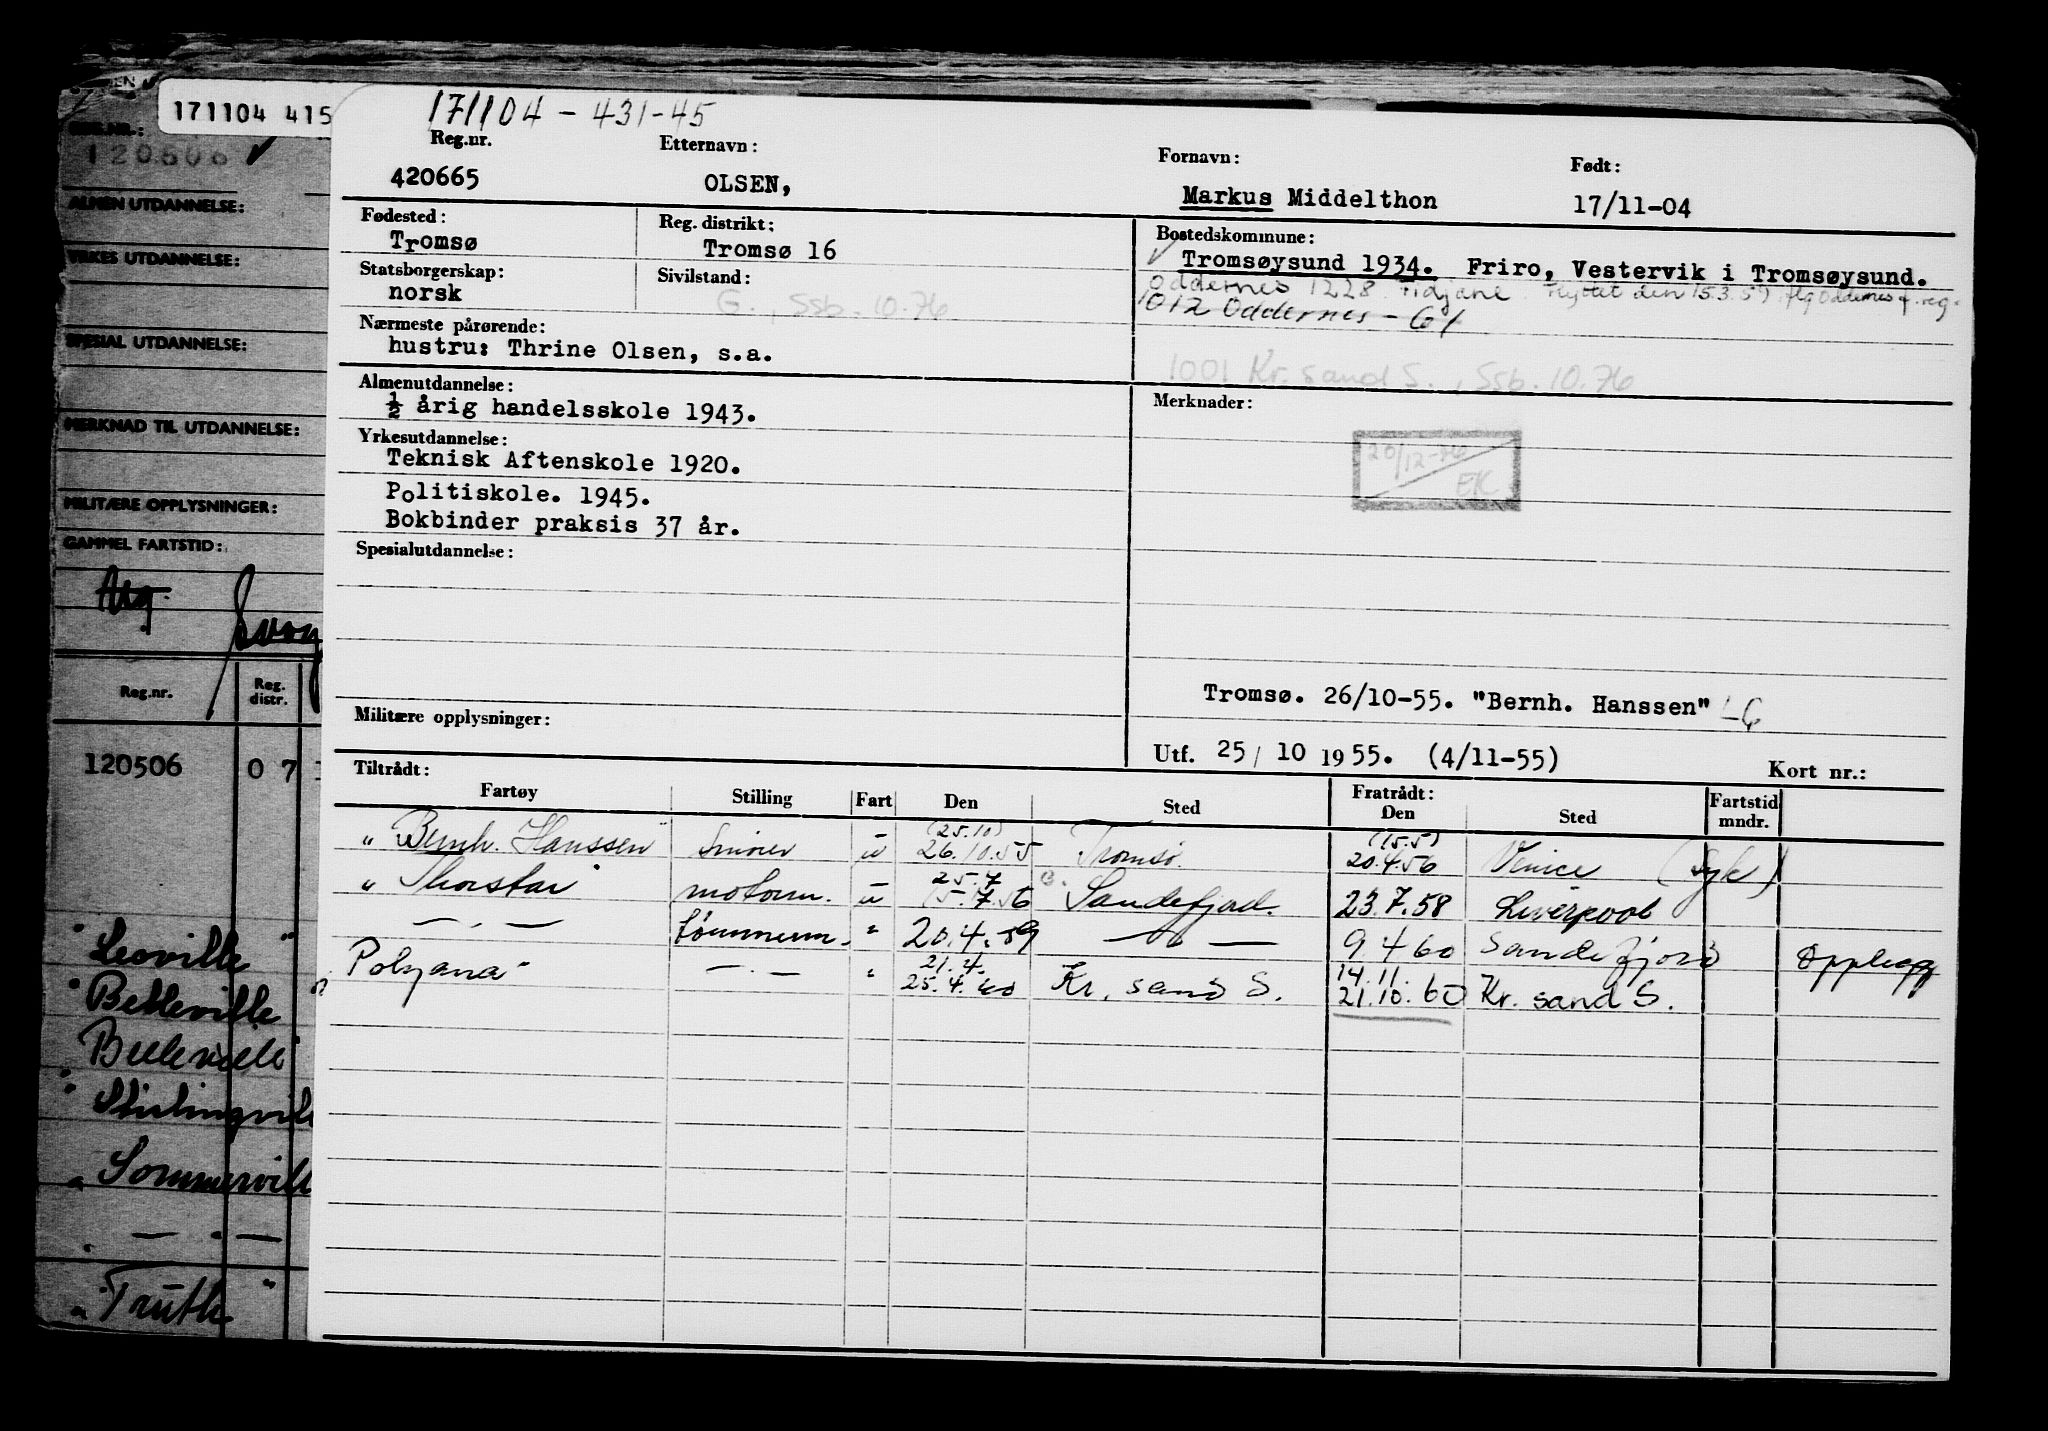 171104 415
171104 - 431-45
Reg.nr. Etternavn: Fornavn: Født:
420665 OLSEN, Markus Middelthon 17/11-04
Fødested: Reg. distrikt: Bostedskommune:
Tromsø Tromsø 16 Tromsøysund 1934. Friro, Vestervik i Tromsøysund.
Statsborgerskap: Sivilstand:
norsk G., Ssb. 10.76
Oddernes 1228 Tidjane. Flyttet den 15.3.57 flg Oddernes f. reg.
1012 Oddernes - 61
Nærmeste pårørende:
hustru: Thrine Olsen, s.a.
1001 Kr. sand S., Ssb. 10.76
Almenutdannelse: Merknader:
½ årig handelsskole 1943.
20/12-76 EK
Yrkesutdannelse:
Teknisk Aftenskole 1920.
Politiskole. 1945.
Bokbinder praksis 37 år.
Spesialutdannelse:
Tromsø. 26/10-55. "Bernh. Hanssen"
Militære opplysninger:
Utf. 25/10 1955. (4/11-55) Kort nr.:
Tiltrådt: Fratrådt:
Fartøy Stilling Fart Den Sted Den Sted Fartstid mndr.
(25.10) (15.5)
" Bernh. Hanssen" Smører u 26.10.55 Tromsø. 20.4.56 Venice (Syk)
25.7
" Thorstar" motorm. u 15.7.56 Sandefjord. 23.7.58 Liverpool
— " — tømmerm. " 20.4.59 — " — 9.4.60 Sandefjord Opplegg
21.4. 14.11.
Polyana" — . — " 25.4.60 Kr. sand S. 21.10.60 Kr. sand S.
REG.NR.:
120506
ALMEN UTDANNELSE:
YRKES UTDANNELSE:
SPESIAL UTDANNELSE:
MERKNAD TIL UTDANNELSE:
MILITÆRE OPPLYSNINGER:
GAMMEL FARTSTID:
Reg.nr. Reg. distr.
120506 07
"Leoville"
"Belleville
Belleville"
"Stirlingvill
" Sommervill
" — " —
" Truth "